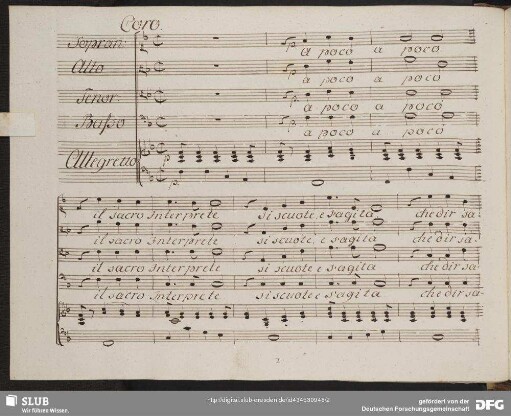 Coro.
Sopran:
a poco a poco
Alto
a poco a poco
Tenor.
a poco a poco
Basso
a poco a poco
Allegretto
il sacro Interprete si scuote, e s'agita che dir sa-
il sacro Interprete si scuote, e s'agita che dir sa-
il sacro Interprete si scuote, e s'agita che dir sa-
il sacro Interprete si scuote e s'agita che dir sa-
SLUB
Wir führen Wissen.
gefördert von der
Deutschen Forschungsgemeinschaft
DFG